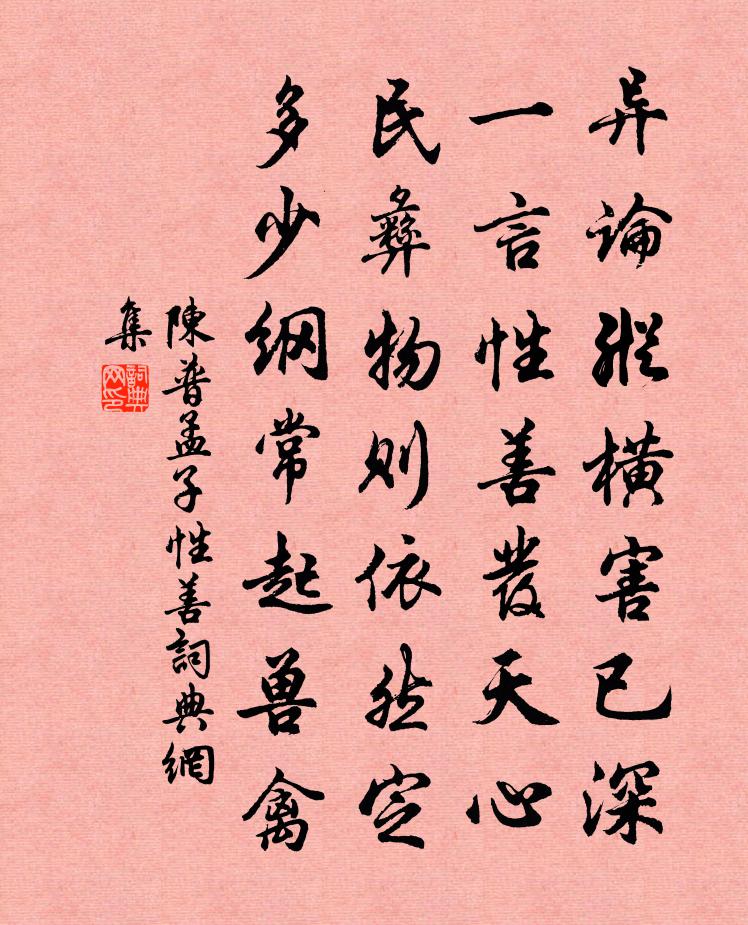 异论縱横害已深
一言性善發天心
民彝物则依然定
多少纲常起兽禽
陳普孟子性善詞典網
集
詞典
网印